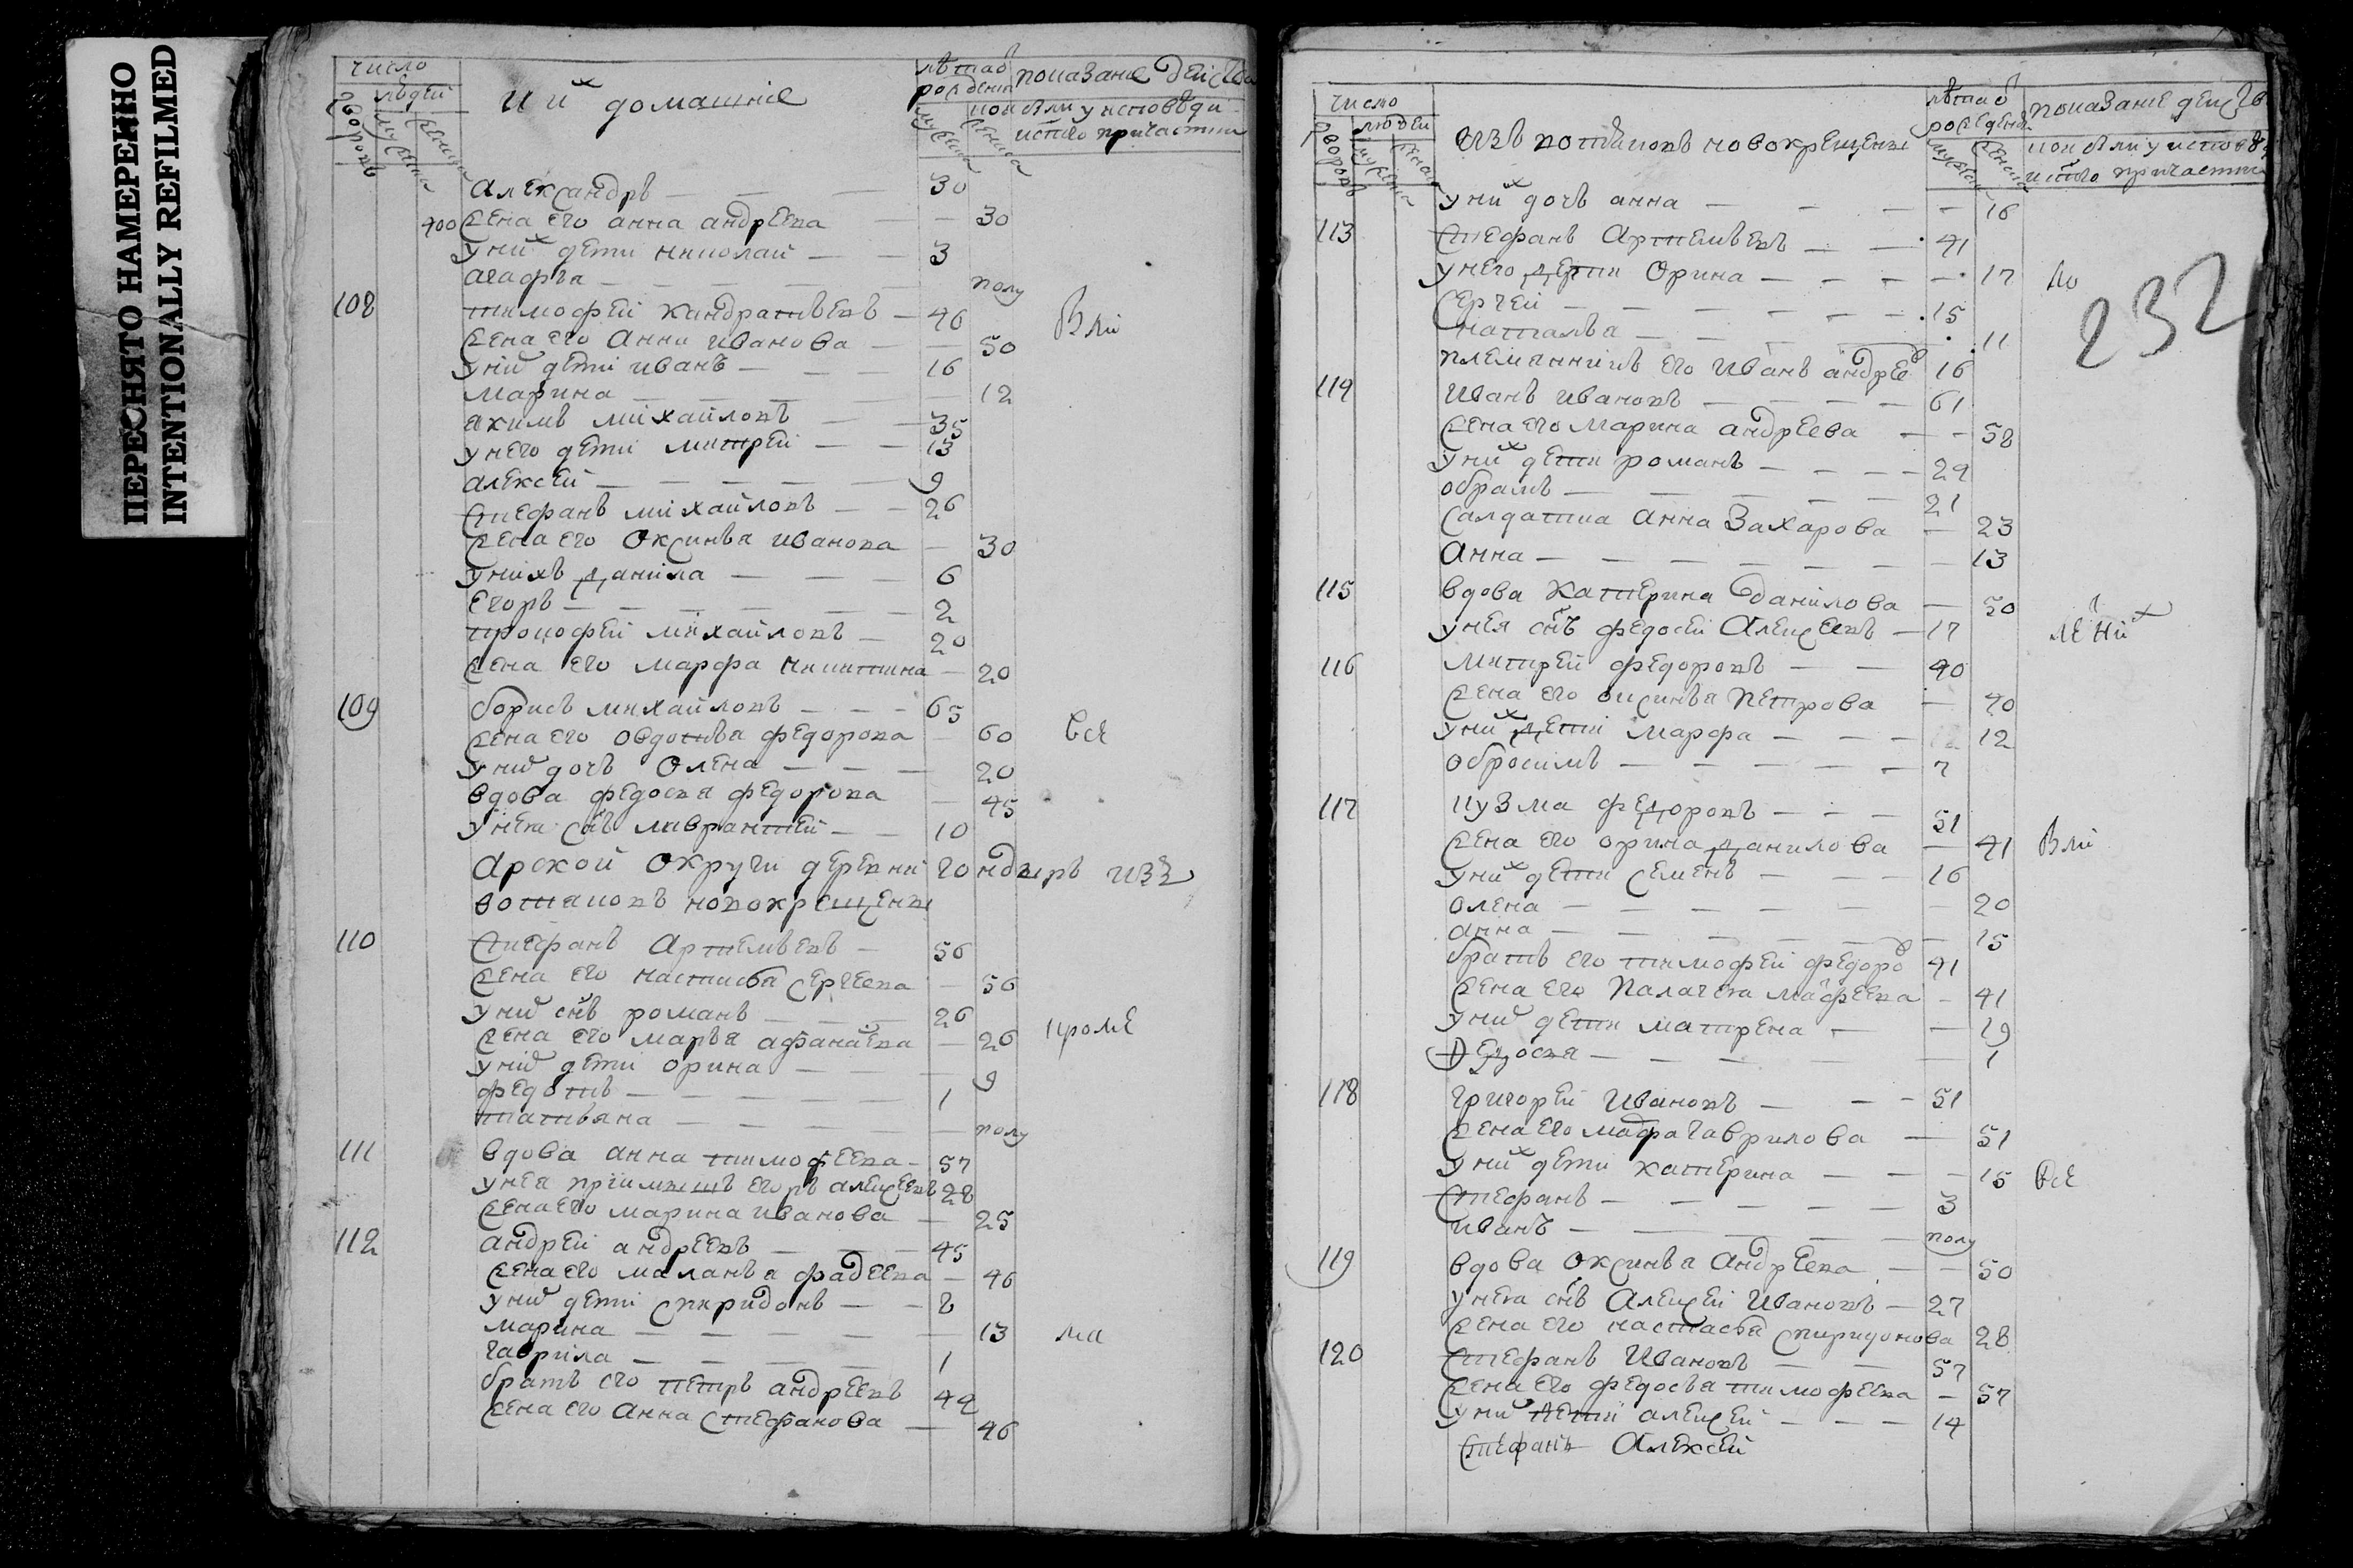 ПЕРЕСНЯТО НАМЕРЕННО
INTENTIONALLY REFILMED
число
людей
дворовъ
мужеска
женска
и их домашние
лѣта от рождения
мужеска
женска
показание действа
кои были у исповѣди
и с̃таго причастия
Александръ — — 30
400 жена его анна андреева — — 30
у них дети николай — — 3
агафья — — — полу
108 тимофей кандратьевъ — 46
жена его Анна иванова — — 50
у них дети иванъ — — — 16
марина — — — — 12
якимъ михайловъ — — 35
у него дети митрей — — 13
алексей — — — — — 9
Степанъ михайловъ — — 26
жена его Оксинья иванова — 30
у нихъ данила — — — 6
Егоръ — — — — — 2
прокофей михайловъ — 20
жена его марфа никитина — 20
109 борисъ михайловъ — — — 65
жена его овдотья федорова — 60 все
у них дочь Олена — — — 20
вдова федосья федорова — 45
у нея сн̃ъ лаврантей — — 10
Арской округи деревни гондырь изъ
вотяковъ новокрещены
110 Стефанъ Артемьевъ — 56
жена его настасья сергеева — 56
у них сн̃ъ романъ — — — 26
жена его марья афанасева — 26 кроме
у них дети орина — — — 9
федотъ — — — — — 1
татьяна — — — — — полу
111 вдова анна тимофеева — 57
у нея приимышъ егоръ алексеевъ 28
жена его марина иванова — 25
112 андрей андреевъ — — — 45
жена его маланья фадеева — 46
у них дети спиридонъ — — 8
марина — — — — — 13
гаврила — — — — 1
братъ его петръ андреевъ 42
жена его Анна Стефанова — 46
число
людей
дворовъ
мужеска
женска
изъ вотяковъ новокрещены
лѣта от рождения
мужеска
женска
показание действ
кои были у исповѣ
и с̃таго причастия
232
у них дочь анна — — — — 16
113 Стефанъ Артемьевъ — — 41
у него дети Орина — — — — 17
Сергей — — — — — — 15
наталья — — — — 11
племянникъ его Иванъ андрее 16
114 Иванъ Ивановъ — — — — 61
жена его Марина андреева — — 58
у них дети романъ — — — — 29
обрамъ — — — — — 21
Салдатка Анна Захарова — 23
Анна — — — — — — — 13
115 вдова Катерина данилова — 50
у нея сн̃ъ федосей Алексеевъ — 17
116 митрей федоровъ — — 40
жена его оксинья петрова — 40
у них дети марфа — — — 12
обросимъ — — — — — 7
117 кузма федоровъ — — — 51
жена его орина данилова — 41
у них дети семенъ — — — 16
олена — — — — — — 20
анна — — — — — — 15
братъ его тимофей федоро 41
жена его Палагея матфеева — 41
у них дети матрена — — 19
Федосья — — — — — 1
118 григорей Ивановъ — — — 51
жена его марфа гаврилова — 51
у них дети катерина — — — 15 все
Стефанъ — — — — — 3
иванъ — — — — — полу
119 вдова Оксинья Андреева — — 50
у нея сн̃ъ Алексей Ивановъ — 27
жена его настасья спиридонова 28
120 Стефанъ Ивановъ — — 57
жена его федосья тимофеева — 57
у них дети алексей — — — 14
Стефанъ Алексей